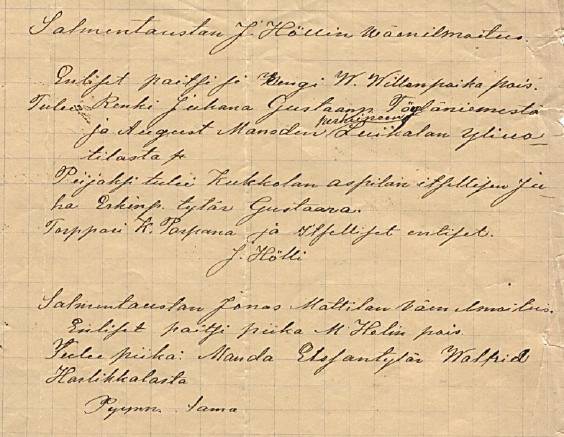 Salmentaustan J. Höllin wäenilmoitus.
Entiset paitsi ji Rengi W. Willanpoika pois.
Tulee Renki Juhana Gustaanp. Töyläniemestä
ja August Mansoden perhineen Luikalan Yliuo-
tilasta
Piijaksi tulee Kukkolan aspilan itsellisen Ju-
ha Erkinp. tytär Gustaava.
Torppari K. Torpana ja Itselliset entiset.
J. Hölli
Salmentaustan Jonas Mattilan väen ilmoitus.
Entiset paitsi piika M Holin pois
Tulee piika: Manda Elofantytär Walfrid
Harlikkalasta
Pyynn. Sama